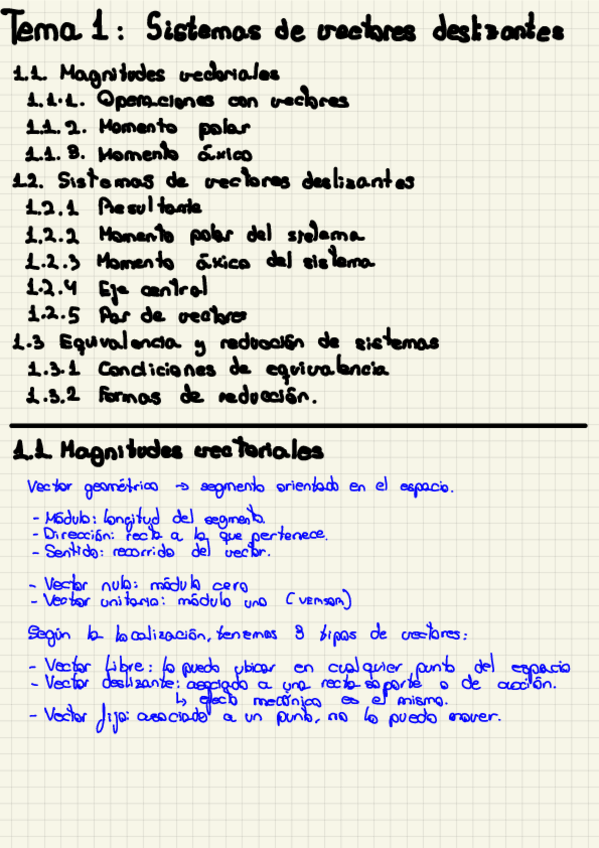 Tema 1: Sistemas de vectores deslizantes
1.1. Magnitudes vectoriales
1.1.1. Operaciones con vectores
1.1.2. Momento polar
1.1.3. Momento áxico
1.2. Sistemas de vectores deslizantes
1.2.1 Resultante
1.2.2 Momento polar del sistema
1.2.3 Momento áxico del sistema
1.2.4 Eje central
1.2.5 Par de vectores
1.3 Equivalencia y reducción de sistemas
1.3.1 Condiciones de equivalencia
1.3.2 Formas de reducción.
1.1 Magnitudes vectoriales
Vector geométrico → segmento orientado en el espacio.
- Módulo: longitud del segmento.
- Dirección: recta a la que pertenece.
- Sentido: recorrido del vector.
- Vector nulo: módulo cero
- Vector unitario: módulo uno (versor)
Según la localización, tenemos 3 tipos de vectores:
- Vector libre: lo puedo ubicar en cualquier punto del espacio
- Vector deslizante: asociado a una recta soporte o de acción.
↳ efecto mecánico es el mismo.
- Vector fijo: asociado a un punto, no lo puedo mover.